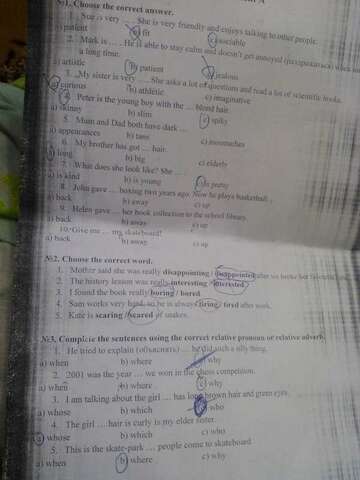 №1. Choose the correct answer.
1. Sue is very … . She is very friendly and enjoys talking to other people.
a) patient b) fit c) sociable
2. Mark is … . He is able to stay calm and doesn't get annoyed (раздражаться) when
a long time.
a) artistic b) patient c) jealous
3. My sister is very … . She asks a lot of questions and read a lot of scientific books.
a) curious b) athletic c) imaginative
4. Peter is the young boy with the … blond hair.
a) skinny b) slim c) spiky
5. Mum and Dad both have dark …
a) appearances b) tans c) moustaches
6. My brother has got … hair.
a) long b) big c) elderly
7. What does she look like? She …
a) is kind b) is young c) is pretty
8. John gave … boxing two years ago. Now he plays basketball.
a) back b) away c) up
9. Helen gave … her book collection to the school library.
a) back b) away c) up
10. Give me … my skateboard!
a) back b) away c) up
№2. Choose the correct word.
1. Mother said she was really disappointing / disappointed after we broke her favourite
2. The history lesson was really interesting / interested.
3. I found the book really boring / bored.
4. Sam works very hard, so he is always tiring / tired after work.
5. Kate is scaring / scared of snakes.
№3. Complete the sentences using the correct relative pronoun or relative adverb.
1. He tried to explain (объяснить) … he did such a silly thing.
a) when b) where c) why
2. 2001 was the year … we won in the chess competition.
a) when b) where c) why
3. I am talking about the girl … has long brown hair and green eyes.
a) whose b) which c) who
4. The girl … hair is curly is my elder sister.
a) whose b) which c) who
5. This is the skate-park … people come to skateboard.
a) when b) where c) why